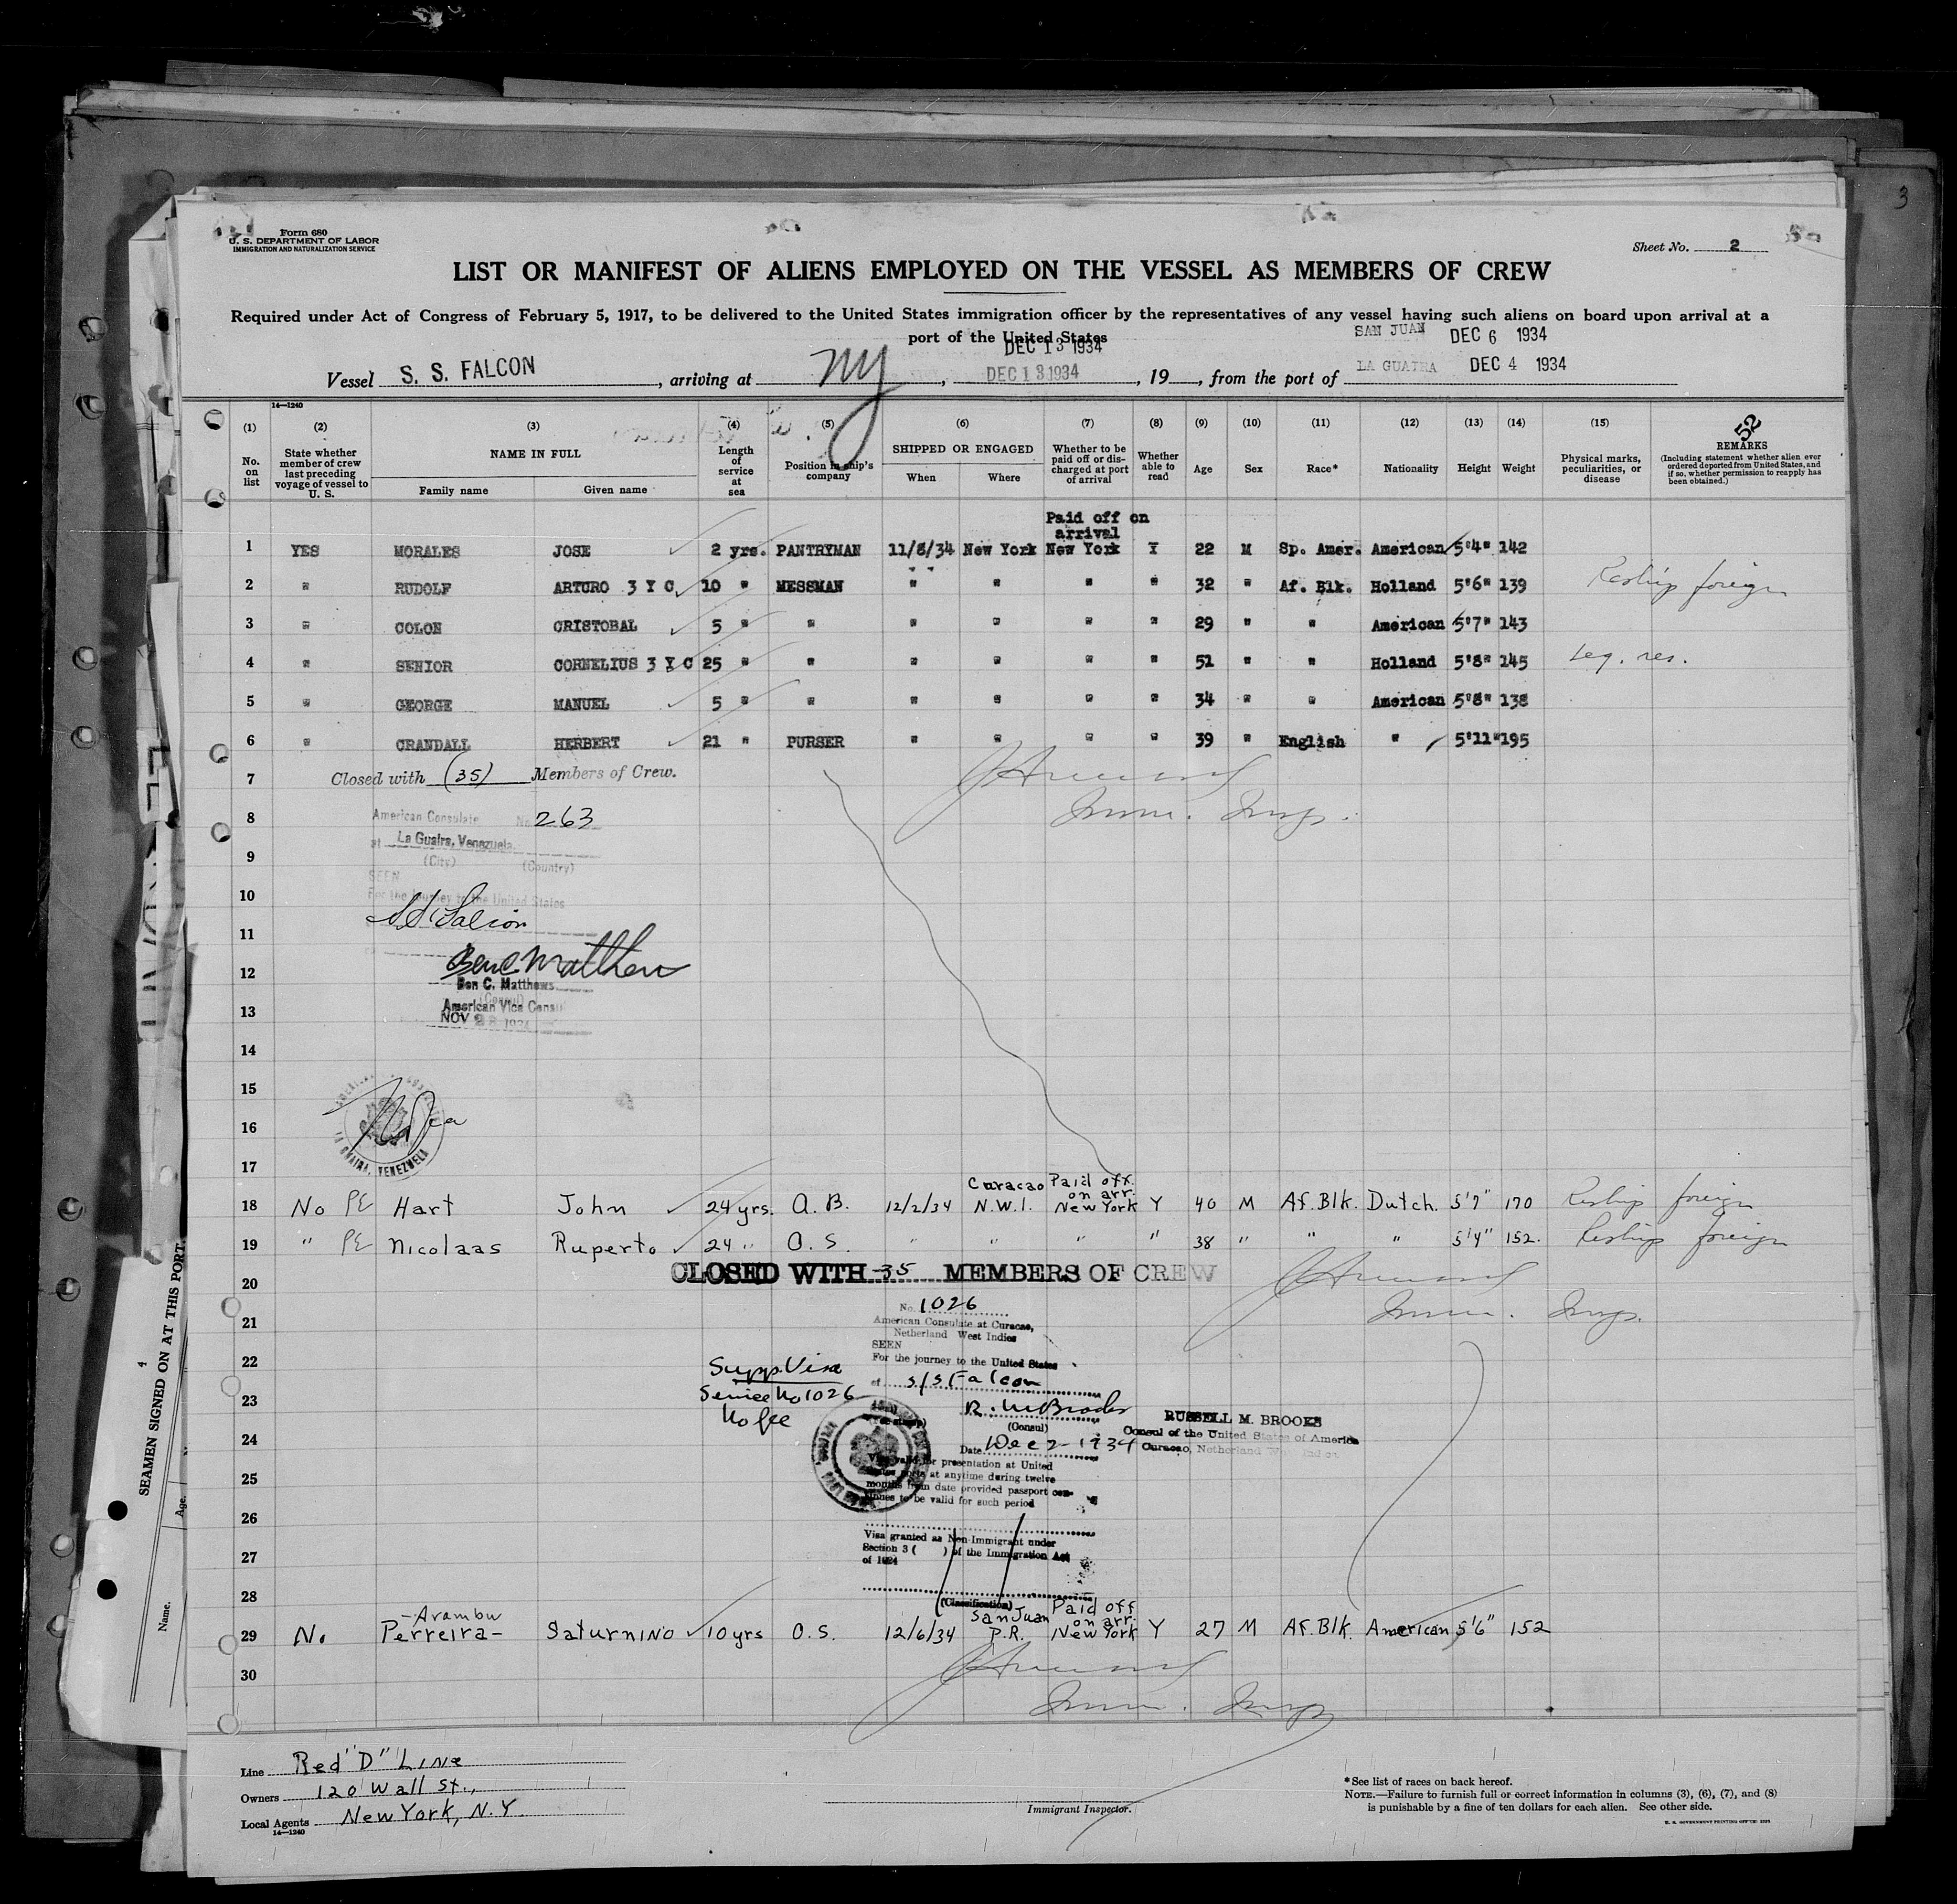 3
Form 680
U. S. DEPARTMENT OF LABOR
IMMIGRATION AND NATURALIZATION SERVICE
Sheet No. 2
LIST OR MANIFEST OF ALIENS EMPLOYED ON THE VESSEL AS MEMBERS OF CREW
Required under Act of Congress of February 5, 1917, to be delivered to the United States immigration officer by the representatives of any vessel having such aliens on board upon arrival at a
port of the United States
SAN JUAN DEC 6 1934
DEC 13 1934
Vessel S. S. FALCON, arriving at NY, DEC 13 1934, 19, from the port of LA GUAIRA DEC 4 1934
14—1240
52
(1) No. on list
(2) State whether member of crew last preceding voyage of vessel to U. S.
(3) NAME IN FULL
Family name
Given name
(4) Length of service at sea
(5) Position in ship's company
(6) SHIPPED OR ENGAGED
When
Where
(7) Whether to be paid off or discharged at port of arrival
(8) Whether able to read
(9) Age
(10) Sex
(11) Race*
(12) Nationality
(13) Height
(14) Weight
(15) Physical marks, peculiarities, or disease
REMARKS
(Including statement whether alien ever ordered deported from United States, and if so, whether permission to reapply has been obtained.)
Paid off on
arrival
1 YES MORALES JOSE 2 yrs. PANTRYMAN 11/8/34 New York New York Y 22 M Sp. Amer. American 5'4" 142
2 " RUDOLF ARTURO 3 Y C 10 " MESSMAN " " " " 32 " Af. Blk. Holland 5'6" 139 Reship foreign
3 " COLON CRISTOBAL 5 " " " " " " 29 " " American 5'7" 143
4 " SENIOR CORNELIUS 3 Y C 25 " " " " " " 51 " " Holland 5'8" 145 Leg. res.
5 " GEORGE MANUEL 5 " " " " " " 34 " " American 5'8" 138
6 " CRANDALL HERBERT 21 " PURSER " " " " 39 " English " 5'11" 195
7 Closed with (35) Members of Crew.
8 American Consulate No. 263
Imm. Insp.
at La Guaira, Venezuela.
9 (City) (Country)
SEEN
10 For the journey to the United States
SS Falcon
11
12 Ben C. Matthews
Ben C. Matthews
(Consul)
13 American Vice Consul
NOV 28 1934
14
15
16
LA GUAIRA, VENEZUELA
17
Curacao Paid off
on arr.
18 No PE Hart John 24 yrs. A. B. 12/2/34 N.W.I. New York Y 40 M Af. Blk. Dutch. 5'7" 170 Reship foreign
19 " PE Nicolaas Ruperto 24 " O. S. " " " " 38 " " " 5'4" 152. Reship foreign
20 CLOSED WITH 35 MEMBERS OF CREW
No. 1026
21 American Consulate at Curacao,
Netherland West Indies
Imm. Insp.
SEEN
22 For the journey to the United States
Supp. Visa
of S/S Falcon
23 Service No 1026
No fee
R. M Brooks
RUSSELL M. BROOKS
(Consul)
Consul of the United States of America
24 Date Dec 2 - 1934
Curacao, Netherland West Indies
Visa valid for presentation at United
25 States ports at anytime during twelve
months from date provided passport con-
tinues to be valid for such period
26
Visa granted as Non-Immigrant under
27 Section 3 ( ) of the Immigration Act
of 1924
28
(Classification)
-Arambu San Juan Paid off
on arr.
29 No Perreira- Saturnino 10 yrs O. S. 12/6/34 P.R. New York Y 27 M Af. Blk. American 5'6" 152
30
Imm. Insp
Line Red "D" Line
Owners 120 Wall St.,
Local Agents New York, N.Y.
14—1240
Immigrant Inspector.
*See list of races on back hereof.
NOTE.—Failure to furnish full or correct information in columns (3), (6), (7), and (8)
is punishable by a fine of ten dollars for each alien. See other side.
SEAMEN SIGNED ON AT THIS PORT.
4
Name.
Age.